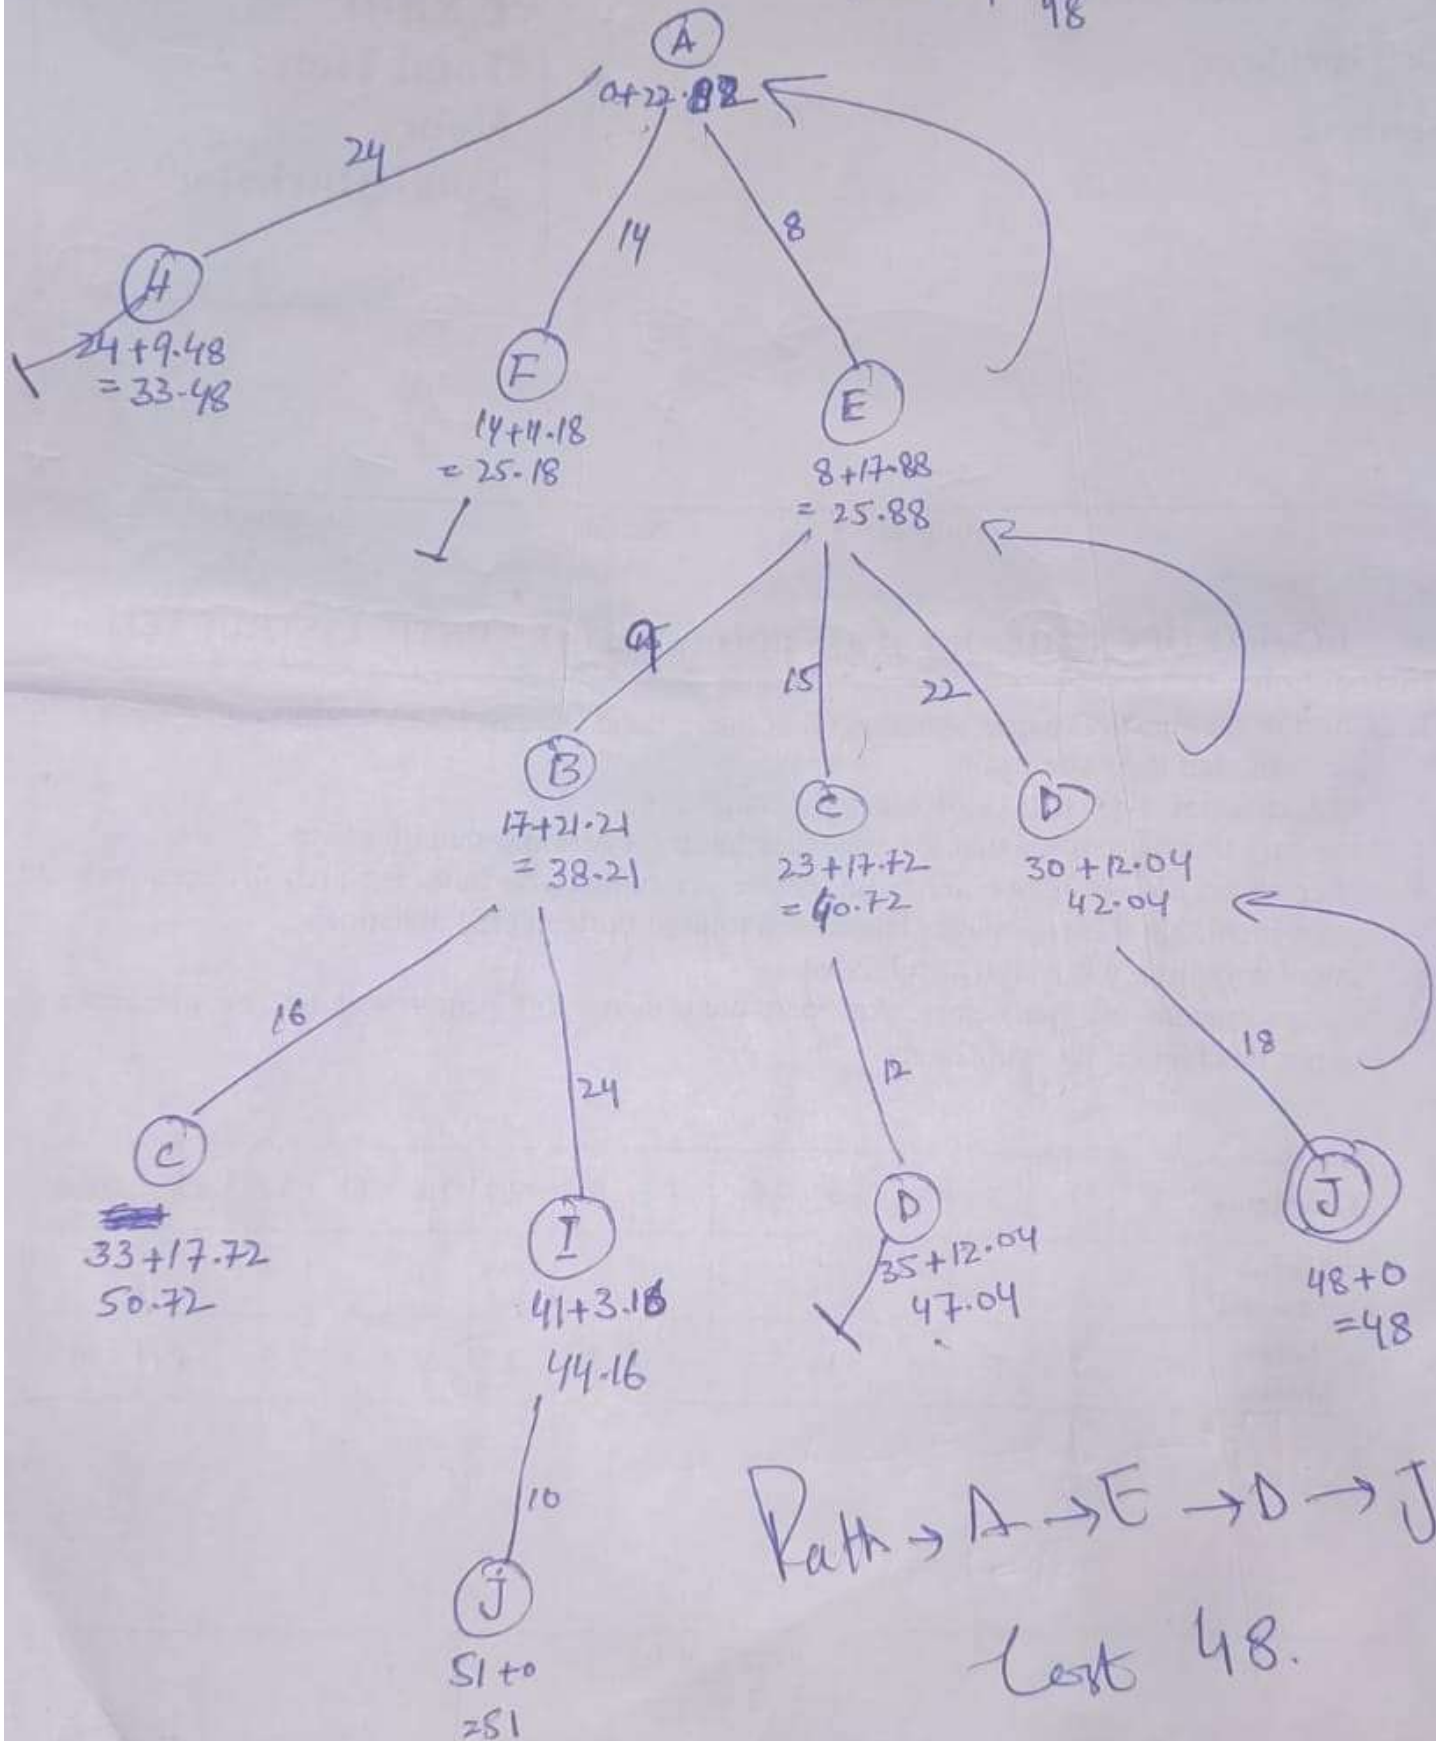 98
A
0+22.82
24
14
8
H
24+9.48
= 33.48
F
14+11.18
= 25.18
E
8+17.88
= 25.88
9
15
22
B
17+21.21
= 38.21
C
23+17.72
= 40.72
D
30+12.04
42.04
16
24
12
18
C
33+17.72
50.72
I
41+3.16
44.16
D
35+12.04
47.04
J
48+0
=48
10
J
51+0
=51
Path → A → E → D → J
Cost 48.